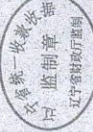 统一收款收据
监制章
辽宁省财政厅监制